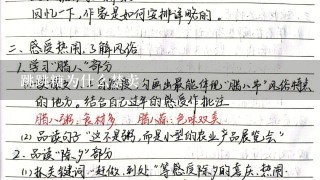 回忆一下,作家是如何安排详略的。
二、感受热闹,了解风俗
1.学习"腊八"部分
跳跳糖为什么禁卖
句画出最能体现"腊八节"风俗特点
的地方。结合自己过年的感受作批注
腊八粥:食材多 腊八蒜:色味双美
(2)品读句子"这不是粥,而是小型的农业产品展览会"
2.品读"除夕"部分
(1)抓关键词"赶做、到处"等感受除夕的喜庆、热闹